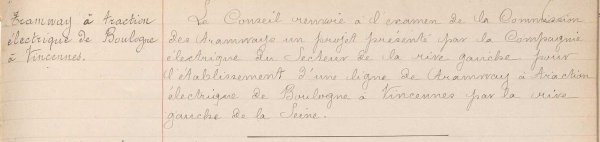 Tramway à traction
électrique de Boulogne
à Vincennes.
Le Conseil renvoie à l'examen de la Commission
des tramways un projet présenté par la Compagnie
électrique du Secteur de la rive gauche pour
l'établissement d'une ligne de tramway à traction
électrique de Boulogne à Vincennes par la rive
gauche de la Seine.